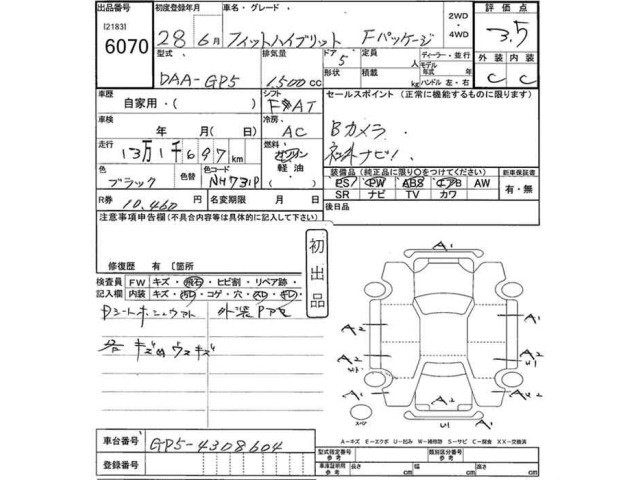 出品番号 初度登録年月 車名・グレード 2WD ・ 4WD 評価点
[2183]
6070 28年6月 フィットハイブリット Fパッケージ 3.5
型式 排気量 ドア 5 定員 人 ディーラー・並行 外装 内装
DAA-GP5 1,500cc 形状 積載 kg モデル年式 年 ハンドル 左・右 C C
車歴 自家用・( ) シフト FAT セールスポイント (正常に機能するものに限ります)
車検 年 月( )日 冷房 AC Bカメラ.
走行 13万1千697km 燃料 ガソリン 軽油 社外ナビ!
色 ブラック 色替 色コード NH731P 装備品(純正品に限り○をつけてください) 新車保証書
PS PW ABS エアB AW 有・無
SR ナビ TV カワ
R券 10,460 名変期限 年 月 日 後日品
注意事項申告欄(不具合内容等は具体的に記入して下さい)
修復歴 有 〔箇所
初出品
検査員記入欄 FW キズ・飛石・ヒビ割・リペア跡・
内装 キズ・汚レ・コゲ・穴・スレ・キレ・
外装
各 キズ
A1
A1
A2
A2
A2
U1
スペア
A-キズ E-エクボ U-凹み W-補修跡 S-サビ C-腐食 XX-交換済
車台番号 GP5-4308604
登録番号
型式指定番号 参考 類別区分番号 参考
車庫証明用 参考 長さ cm 幅 cm 高さ cm